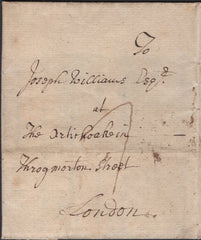 To
Joseph Williams Esqr.
at
The Artichoake in
Throgmorton Street
London.